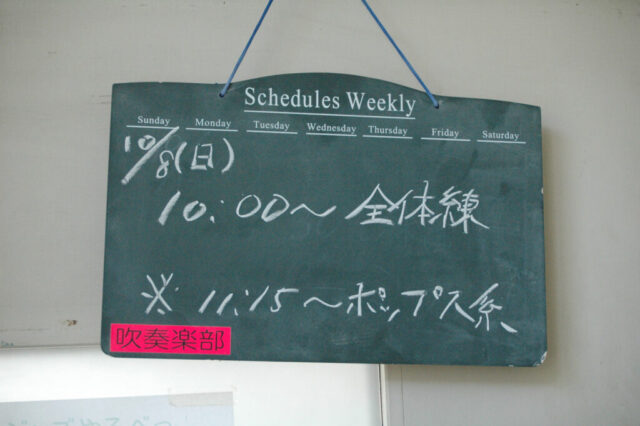 Schedules Weekly
Sunday Monday Tuesday Wednesday Thursday Friday Saturday
10/8(日)
10:00〜 全体練
※ 11:15〜ポップス系
吹奏楽部